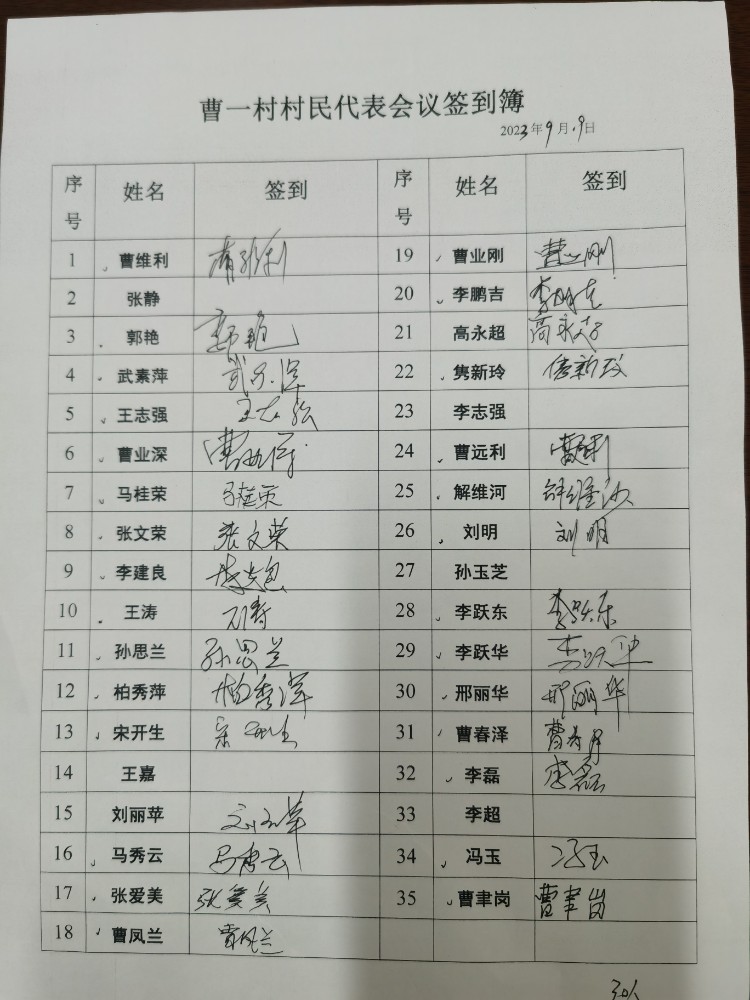 曹一村村民代表会议签到簿
2023年9月9日
序号 姓名 签到 序号 姓名 签到
1 曹维利 曹维利 19 曹业刚 曹业刚
2 张静 20 李鹏吉 李鹏吉
3 郭艳 郭艳 21 高永超 高永超
4 武素萍 武素萍 22 隽新玲 隽新玲
5 王志强 王志强 23 李志强
6 曹业深 曹业深 24 曹远利 曹远利
7 马桂荣 马桂荣 25 解维河 解维河
8 张文荣 张文荣 26 刘明 刘明
9 李建良 27 孙玉芝
10 王涛 王涛 28 李跃东 李跃东
11 孙思兰 孙思兰 29 李跃华 李跃华
12 柏秀萍 柏秀萍 30 邢丽华 邢丽华
13 宋开生 宋开生 31 曹春泽
14 王嘉 32 李磊 李磊
15 刘丽苹 刘丽苹 33 李超
16 马秀云 马秀云 34 冯玉 冯玉
17 张爱美 张爱美 35 曹聿岗 曹聿岗
18 曹凤兰 曹凤兰
30人